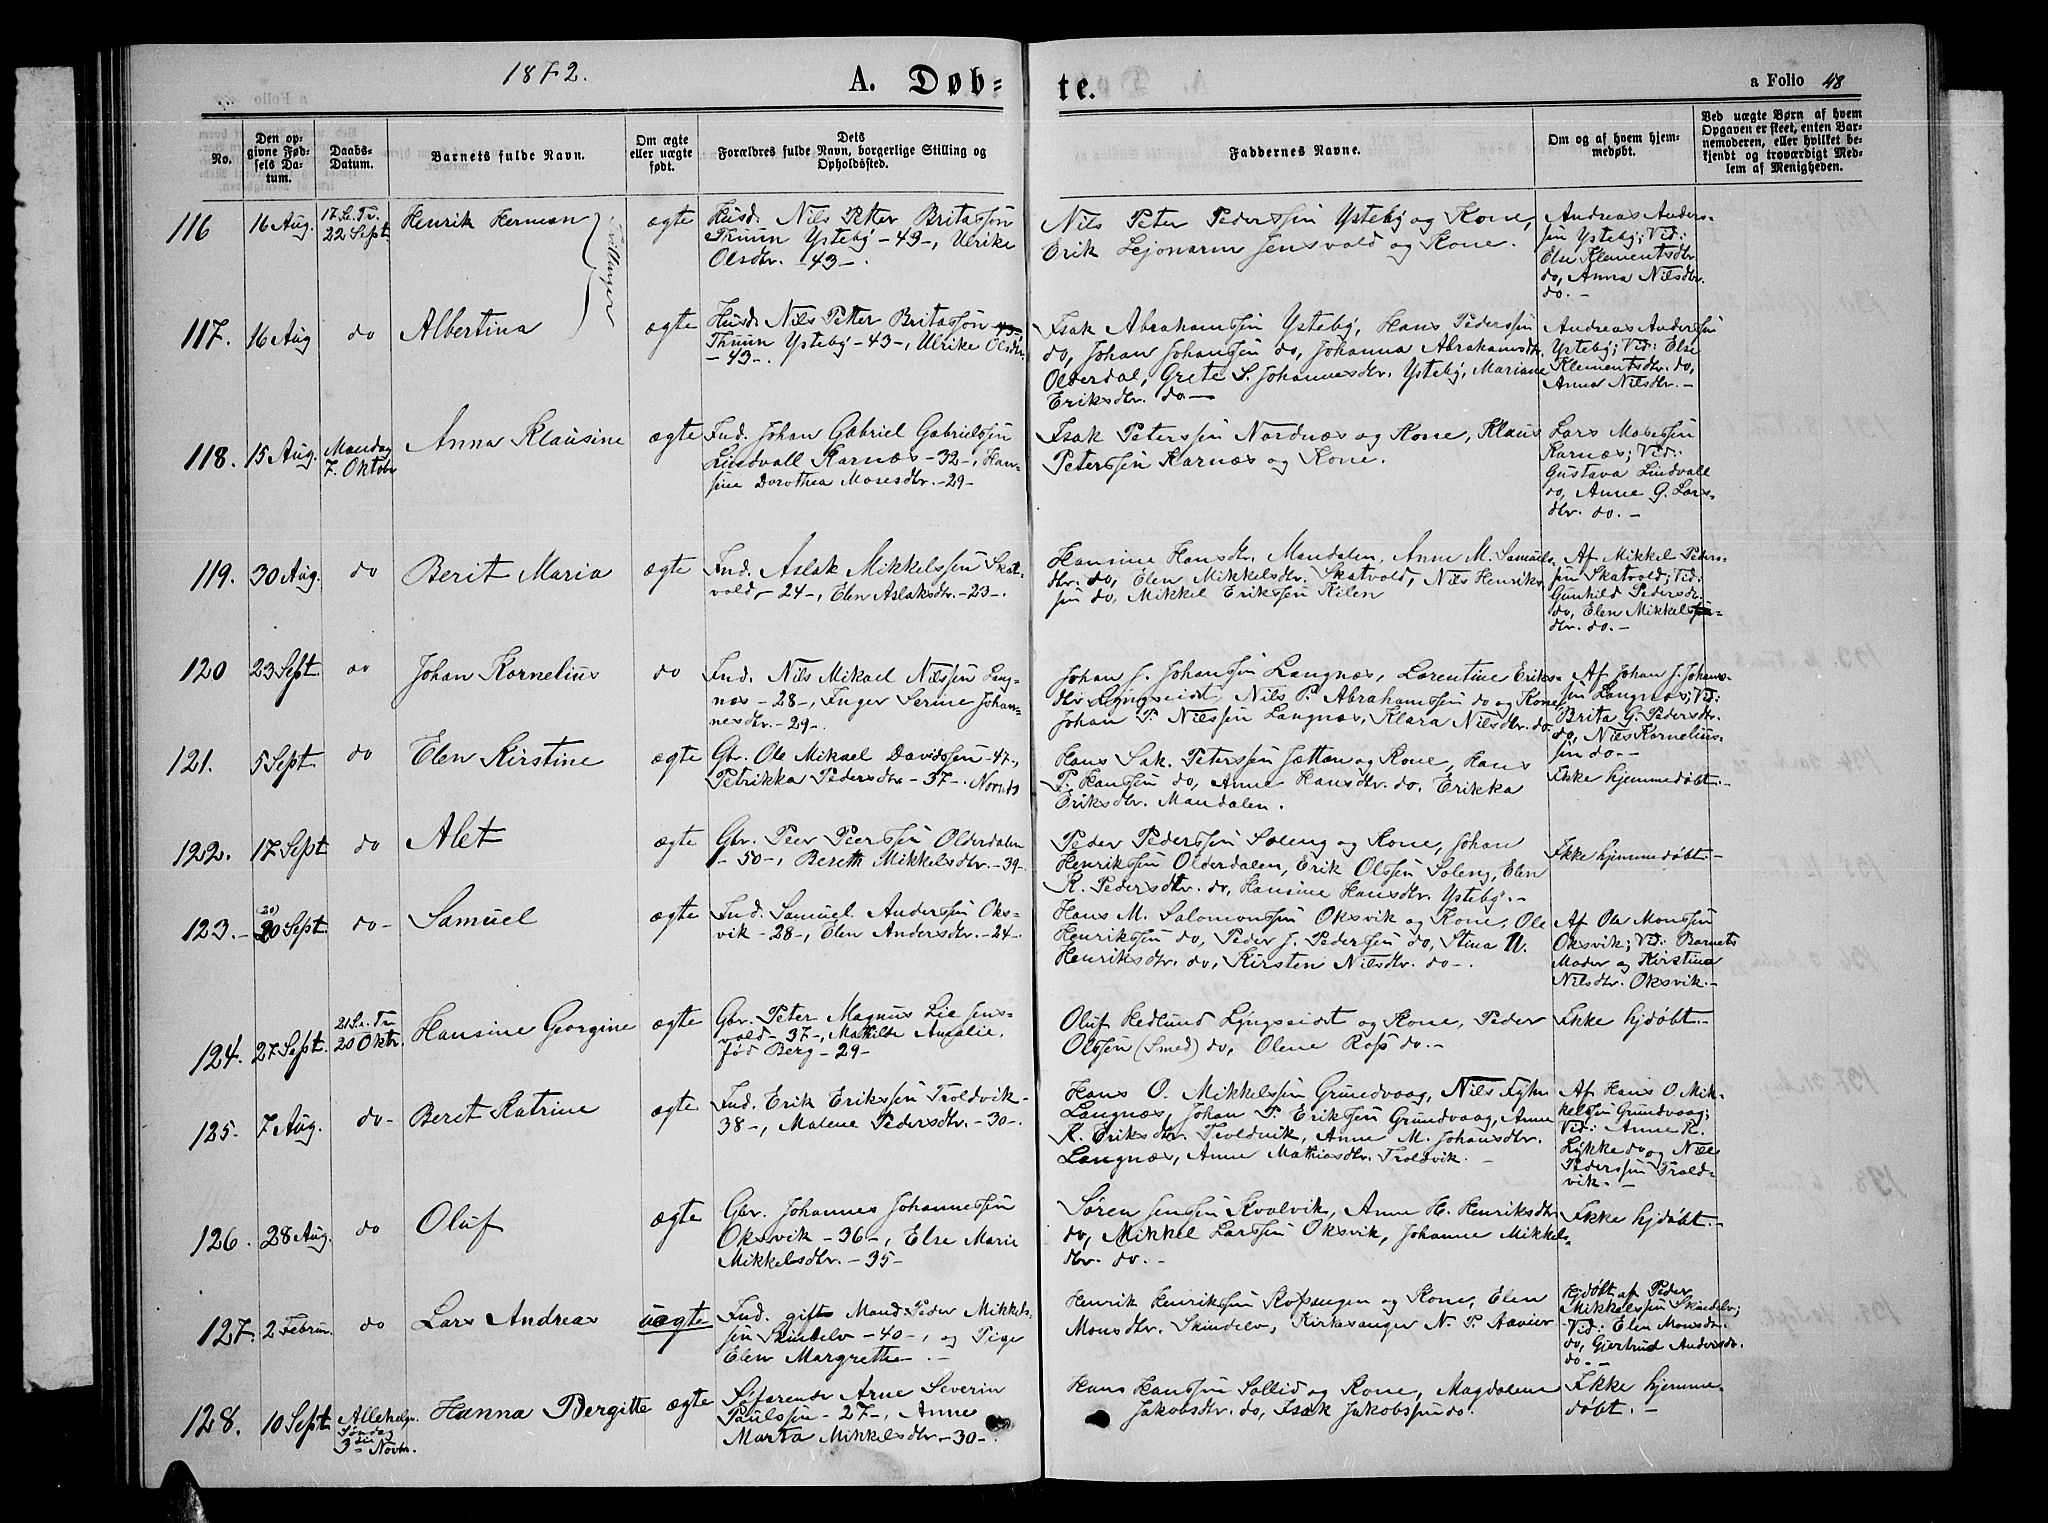 1872.
A. Døb-
te.
a Folio 48
No.
Den op-
givne Fød-
sels Da-
tum.
Daabs-
Datum.
Barnets fulde Navn.
Om ægte
eller uægte
født.
Dets
Forældres fulde Navn, borgerlige Stilling og
Opholdssted.
Faddernes Navne.
Om og af hvem hjem-
medøbt.
Ved uægte Børn af hvem
Opgaven er skeet, enten Bar-
nemoderen, eller hvilket be-
kjendt og troværdigt Med-
lem af Menigheden.
116
16 Aug.
17 S. Tr.
22 Sept
Henrik Herman
Tvillinger
ægte
Husd. Nils Petter Britassøn
Thuun Ystebÿ - 43 -, Ulrike
Olsdtr. - 43 -.
Nils Peter Pederssøn Ystebÿ og Kone,
Erik Lejonarm Jensvold og Kone.
Andreas Anders-
søn Ystebÿ; Vid:
Else Klementsdtr
do, Anna Nilsdtr.
do. -
117.
16 Aug
do
Albertina
ægte
Husd. Nils Petter Britassøn
Thuun Ystebÿ - 43 -, Ulrike Olsdtr.
- 43 -.
Isak Abrahamssøn Ystebÿ, Hans Pederssøn
do, Johan Johanssøn do, Johanna Abrahamsdtr.
Olderdal, Grete S. Johannesdtr. Ystebÿ, Mariane
Eriksdtr. do -
Andreas Anderssøn
Ystebÿ; Vid: Else
Klementsdtr. do,
Anna Nilsdtr. -
118.
15 Aug.
Mandag
7. Oktobr
Anna Klausine
ægte
Ind. Johan Gabriel Gabrielssøn
Lindvall Karnæs - 32 -, Han-
sine Dorothea Mosesdtr. - 29 -
Isak Peterssøn Nordnæs og Kone, Klaus
Peterssøn Karnæs og Kone.
Lars Mosessøn
Karnæs; Vid:
Gustava Lindvall
do, Anne G. Lars-
dtr. do. -
119.
30 Aug.
do
Berit Maria
ægte
Ind. Aslak Mikkelssøn Skat-
vold - 24 -, Elen Aslaksdtr. - 23 -.
Hansine Hansdtr. Mandalen, Anne M. Samuels-
dtr. do, Elen Mikkelsdtr. Skatvold, Nils Henriks-
søn do, Mikkel Erikssøn Kilen
Af Mikkel Peders-
søn Skatvold; Vid:
Gunhild Pedersdtr.
do, Elen Mikkels
dtr. do. -
120
23 Sept
do
Johan Kornelius
do
Ind. Nils Mikael Nilssøn Lang-
næs - 28 -, Inger Serine Johan-
nesdtr. - 29 -.
Johan J. Johanssøn Langnæs, Lorentine Eriks-
dtr Lÿngseidet, Nils P. Abrahamssøn do og Kone,
Johan P. Nilssøn Langnæs, Klara Nilsdtr. do.
Af Johan J. Johans-
søn Langnæs; Vid:
Brita G. Pedersdtr.
do, Nils Kornelius-
søn do. -
121.
5 Sept.
do
Elen Kirstine
ægte
Gbr. Ole Mikael Davidssøn - 47 -,
Petrikka Pedersdtr - 37 -.
Hans Sak. Peterssøn Jættan og Kone, Hans
P. Hanssøn do, Anne Hansdtr. do, Erikka
Eriksdtr. Mandalen.
Ikke hjemmedøbt. -
122.
17 Sept
do
Alet
ægte
Gbr. Peer Peerssøn Olderdalen
- 50 -, Bereth Mikkelsdtr. - 39 -.
Peder Pederssøn Soleng og Kone, Johan
Henrikssøn Olderdalen, Erik Olssøn Soleng, Elen
K. Pedersdtr. do, Hansine Hansdtr. Ystebÿ. -
Ikke hjemmedøbt. -
123. -
(20)
20 Sept.
do -
Samuel
ægte
Ind. Samuel Anderssøn Oks-
vik - 28 -, Elen Andersdtr. - 24 -.
Hans M. Salomonssøn Oksvik og Kone, Ole
Henrikssøn do, Peder J. Pederssøn do, Stina N.
Henriksdtr. do, Kirsten Nilsdtr. do -.
Af Ole Monssøn
Oksvik; Vid: Barnets
Moder og Kirstina
Nilsdtr. Oksvik. -
124.
27 Sept.
21 S. e. Tr
20 Oktr.
Hansine Georgine
ægte
Gbr. Peter Magnus Lie Jens-
vold - 37 -, Mathilde Amalie,
fød Berg - 29 -
Oluf Hedlund Lÿngseidet og Kone, Peder
Olssøn (Smed) do, Olene Ross do. -
Ikke hjdøbt. -
125.
7 Aug.
do -
Beret Katrine
ægte
Ind. Erik Erikssøn Troldvik -
38 -, Malene Pedersdtr. - 30 -.
Hans O. Mikkelssøn Grundvaag, Nils Fÿhn
Langnæs, Johan P. Erikssøn Grundvaag, Anne
K. Eriksdtr. Troldvik, Anne M. Johansdtr.
Langnæs, Anne Mathiasdtr. Troldvik. -
Af Hans O. Mik-
kelssøn Grundvaag;
Vid: Anne K.
Lÿkke do og Nils
Pederssøn Trold-
vik. -
126.
28 Aug.
do
Oluf
ægte
Gbr. Johannes Johannessøn
Oksvik - 36 -, Else Marie
Mikkelsdtr. - 35 -
Søren Jenssøn Kvalvik, Anne H. Henriksdtr
do, Mikkel Larssøn Oksvik, Johanne Mikkels-
dtr. do. -
Ikke hjdøbt. -
127.
2 Februr.
do
Lars Andreas
uægte
Ind. gift Mand Peder Mikkels-
søn Skindelv - 40 -, og Pige
Elen Margrethe. -
Henrik Henrikssøn Rossangen og Kone, Elen
Monsdtr. Skindelv, Kirkesanger N. P. Aavier
Hjdøbt af Peder
Mikkelssøn Skindelv;
Vid: Elen Monsdtr.
do, Gjertrud Andersdtr.
do. -
128.
10 Sept
Allehelgs
Søndag
3die Novbr.
Hanna Bergitte
ægte
Søfarende Arne Severin
Paulssøn - 27 -, Anne
Marta Mikkelsdtr - 30 -.
Hans Hanssøn Sollid og Kone, Magdalena
Jakobsdtr. do, Isak Jakobssøn do.
Ikke hjemme-
døbt. -